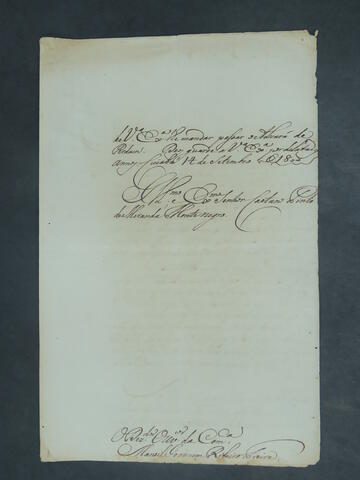 de V.ª Ex.ª lhe mandar passar o Alvará de
Perdam. Deos guarde a V.ª Ex.ª por dilatados
annos Cuiabá 14 de Setembro de
Ill.mo e Ex.mo Senhor Caetano Pinto
de Miranda Monte negro.
O Dez.or Ouv.or da Com.ca
Manoel